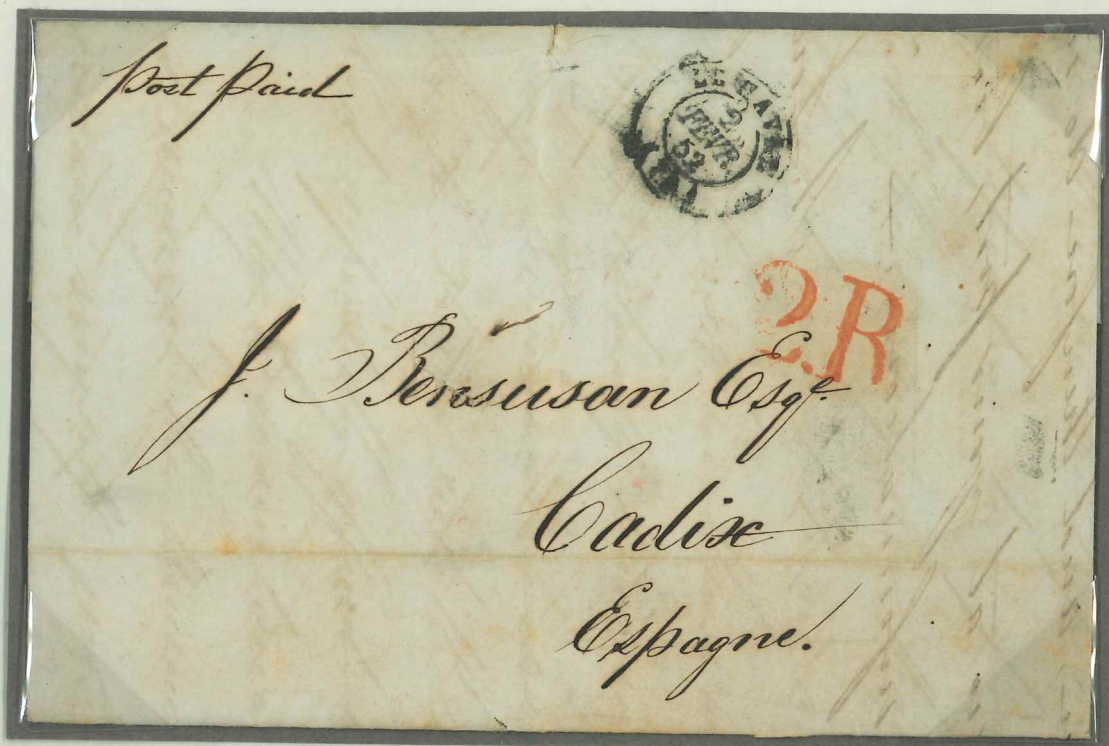 Post Paid
LE HAVRE
2
FEVR.
52
2.R
J. Bensusan Esqe.
Cadix
Espagne.